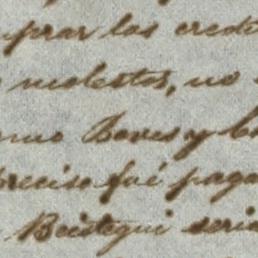 mprar los credi
molestos, no
mo Bares y b
preciso fué paga
Beistegui seria